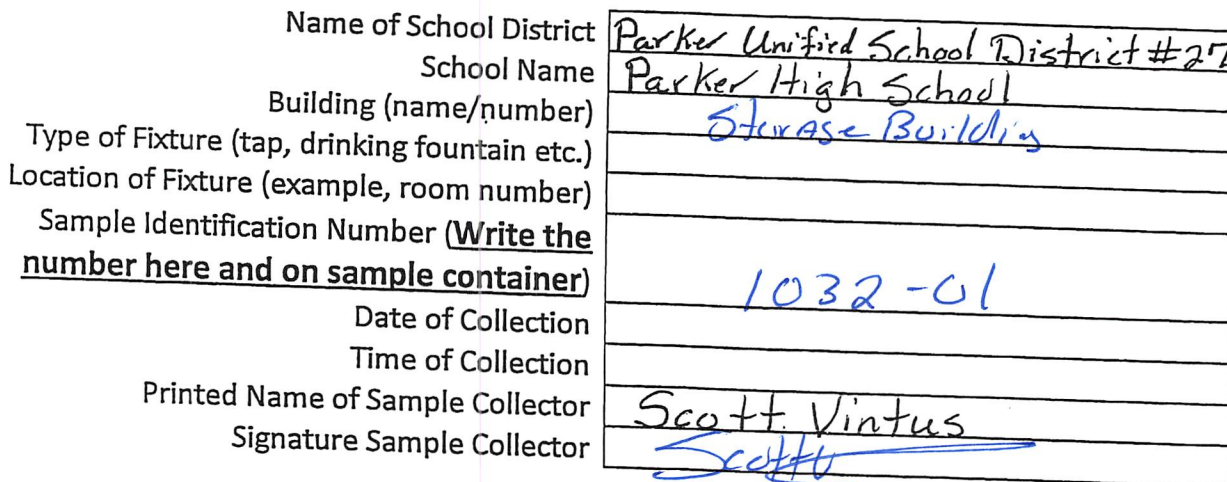 Name of School District Parker Unified School District #27
School Name Parker High School
Building (name/number) Storage Building
Type of Fixture (tap, drinking fountain etc.)
Location of Fixture (example, room number)
Sample Identification Number (Write the
number here and on sample container) 1032-01
Date of Collection
Time of Collection
Printed Name of Sample Collector Scott Vintus
Signature Sample Collector Scott